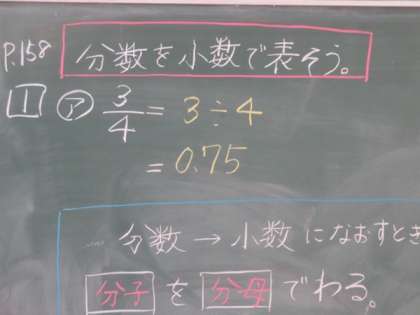 P.158 分数を小数で表そう。
1 ㋐ 3/4 = 3÷4
= 0.75
分数→小数になおすとき
分子を分母でわる。